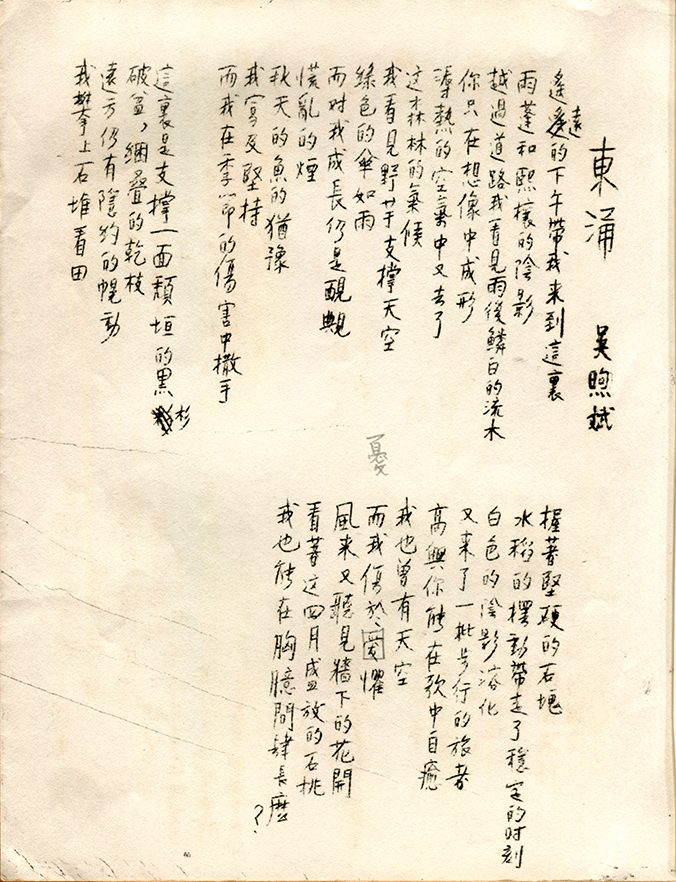 東涌
吳煦斌
遙遠的下午帶我来到這裏
雨蓬和熙攘的陰影
越過道路我看見雨後鱗白的流木
你只在想像中成形
溽熱的空氣中又去了
这森林的氣候
我看見野芋支撐天空
綠色的傘如雨
而对我成長仍是靦覥
慌亂的煙
秋天的魚的猶豫
我寫及堅持
而我在季節的傷害中撒手
這裏是支撐一面頹垣的黑杉
破盆，綑叠的乾枝
遠方仍有隱約的幌动
我攀上石堆看田
握著堅硬的石塊
水稻的擺動帶走了穩定的时刻
白色的陰影溶化
又来了一批步行的旅者
高興你能在歌中自癒
我也曾有天空
而我傷於憂懼
風来又聽見牆下的花開
看著这四月盛放的石挑
我也能在胸臆間肆長麽？
憂